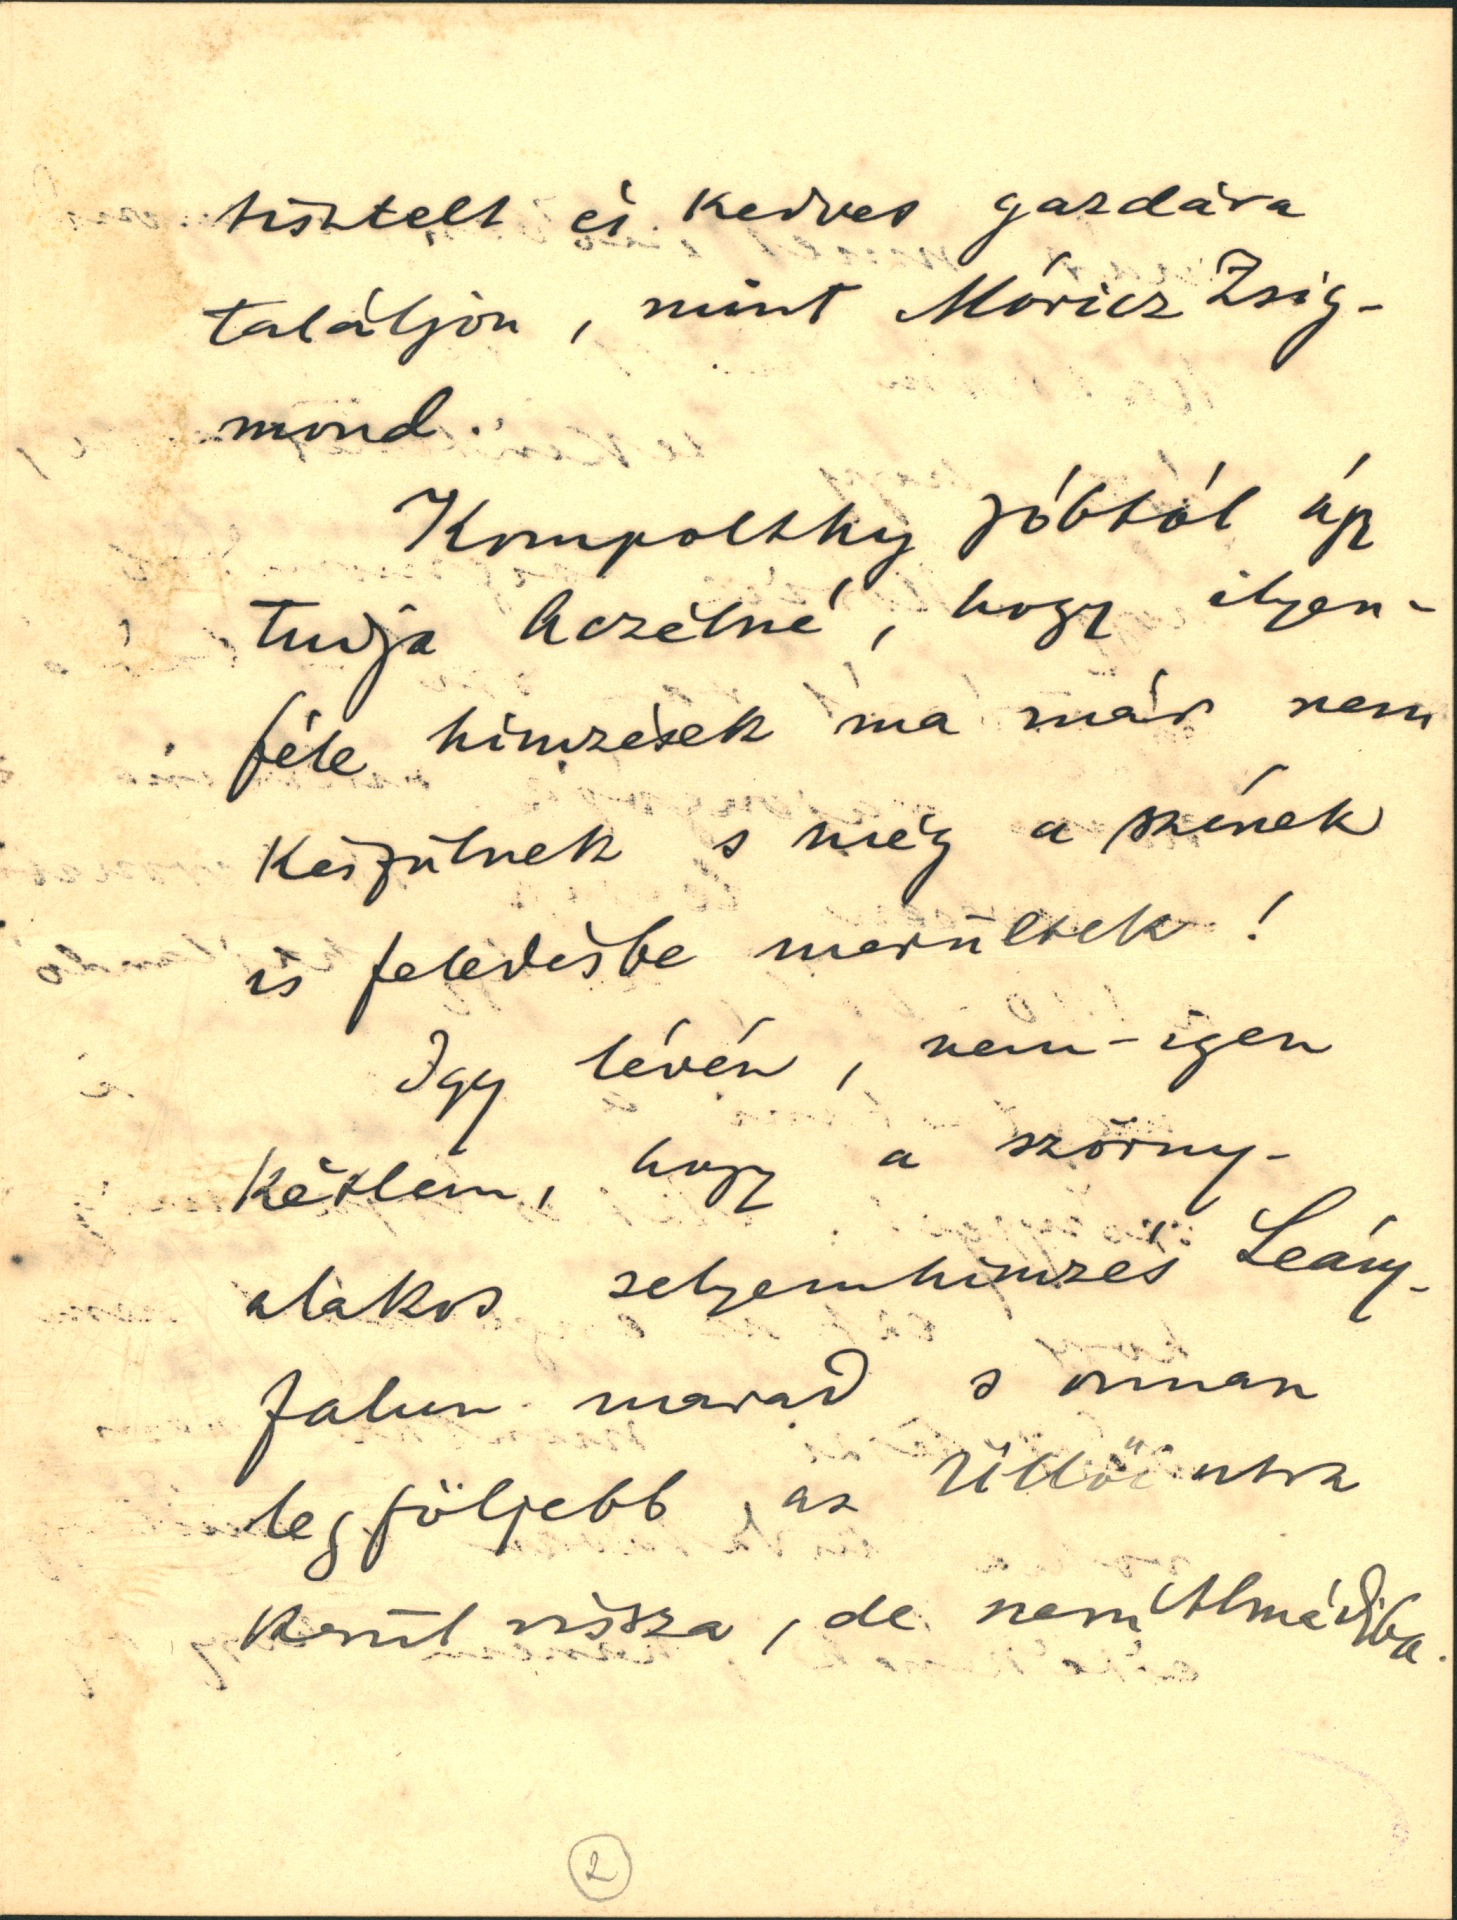 tisztelt és kedves gazdára
találjon, mint Móricz Zsig-
mond.
Kompolthy Jóbtól úgy
tudja Aczélné, hogy ilyen-
féle himzések ma már nem
készülnek s még a színek
is feledésbe merültek!
Igy lévén, nem-igen
kétlem, hogy a szörny-
alakos selyemhimzés Leány-
falun marad s onnan
legföljebb az Üllői utra
kerül vissza, de nem Almádiba.
2